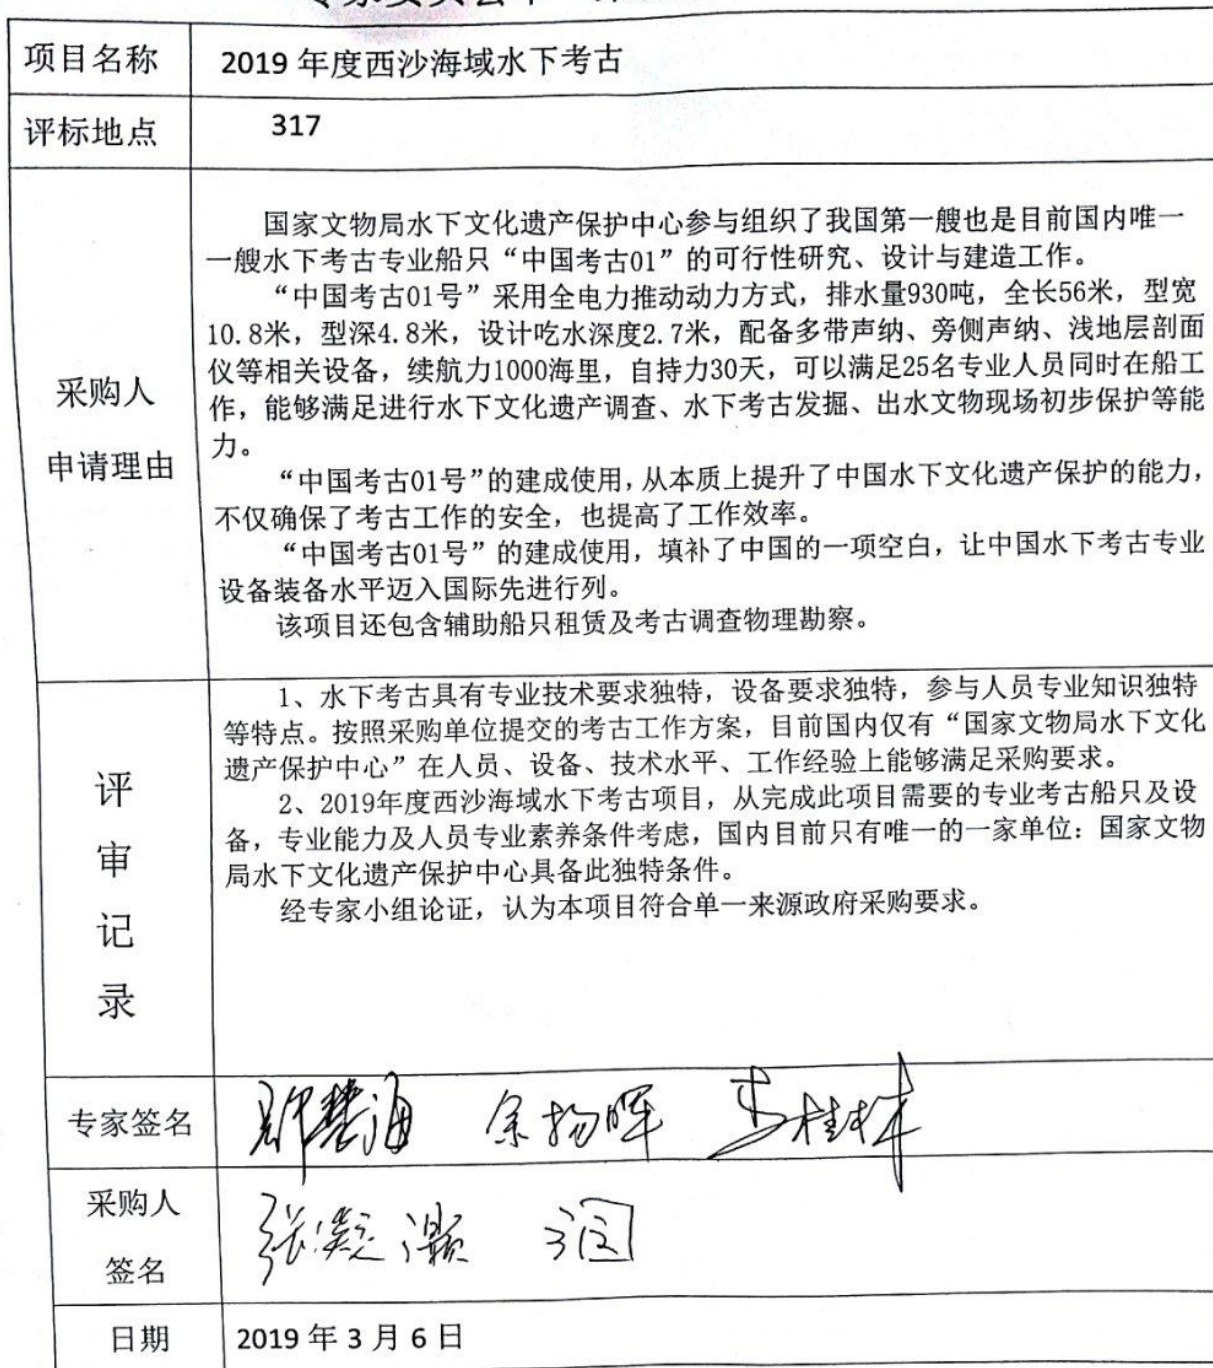 专家委员会单一
项目名称
2019 年度西沙海域水下考古
评标地点
317
采购人
申请理由
国家文物局水下文化遗产保护中心参与组织了我国第一艘也是目前国内唯一
一艘水下考古专业船只“中国考古01”的可行性研究、设计与建造工作。
“中国考古01号”采用全电力推动动力方式，排水量930吨，全长56米，型宽
10.8米，型深4.8米，设计吃水深度2.7米，配备多带声纳、旁侧声纳、浅地层剖面
仪等相关设备，续航力1000海里，自持力30天，可以满足25名专业人员同时在船工
作，能够满足进行水下文化遗产调查、水下考古发掘、出水文物现场初步保护等能
力。
“中国考古01号”的建成使用，从本质上提升了中国水下文化遗产保护的能力，
不仅确保了考古工作的安全，也提高了工作效率。
“中国考古01号”的建成使用，填补了中国的一项空白，让中国水下考古专业
设备装备水平迈入国际先进行列。
该项目还包含辅助船只租赁及考古调查物理勘察。
评审记录
1、水下考古具有专业技术要求独特，设备要求独特，参与人员专业知识独特
等特点。按照采购单位提交的考古工作方案，目前国内仅有“国家文物局水下文化
遗产保护中心”在人员、设备、技术水平、工作经验上能够满足采购要求。
2、2019年度西沙海域水下考古项目，从完成此项目需要的专业考古船只及设
备，专业能力及人员专业素养条件考虑，国内目前只有唯一的一家单位：国家文物
局水下文化遗产保护中心具备此独特条件。
经专家小组论证，认为本项目符合单一来源政府采购要求。
专家签名
余扬晖
采购人
签名
日期
2019 年 3 月 6 日